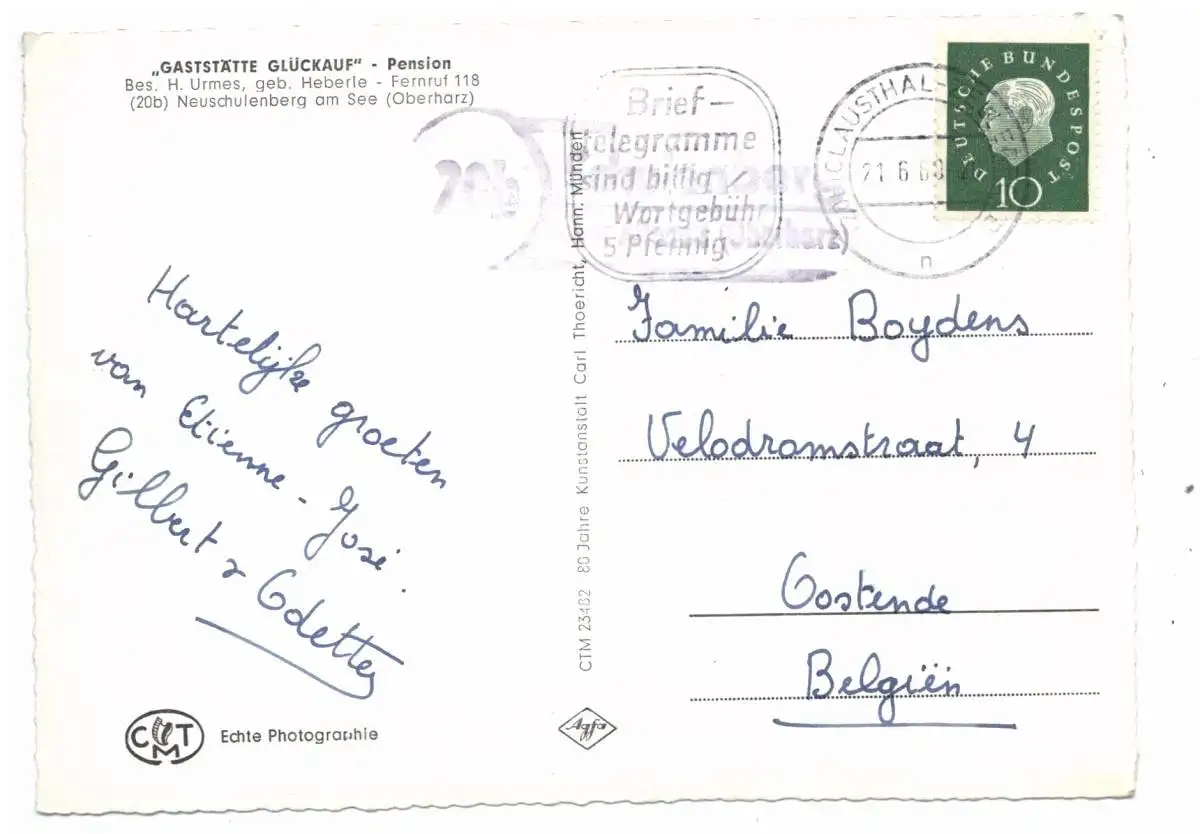 „GASTSTÄTTE GLÜCKAUF“ - Pension
Bes. H. Urmes, geb. Heberle - Fernruf 118
(20b) Neuschulenberg am See (Oberharz)
20b
(Oberharz)
Brief-
telegramme
sind billig
Wortgebühr
5 Pfennig
CLAUSTHAL-
21.6.60
n
DEUTSCHE BUNDESPOST
10
Hartelijke groeten
van Etienne - José.
Gilbert & Odette
Familie Boydens
Velodromstraat, 4
Oostende
Belgiën
CTM 23482 80 Jahre Kunstanstalt Carl Thoericht, Hann. Münden
CMT
Echte Photographie
Agfa